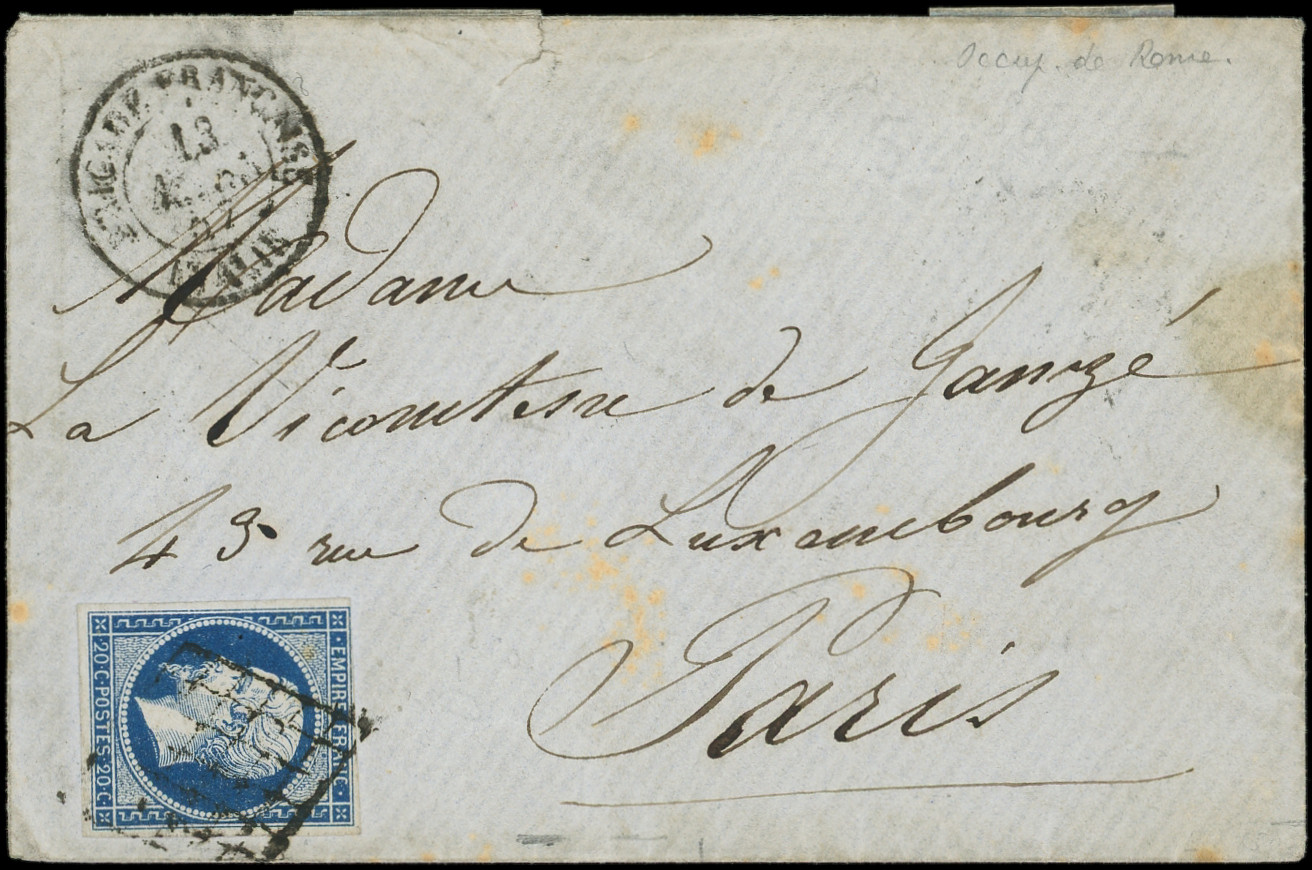 Occup. de Rome.
BRIGADE FRANÇAISE
13
ITALIE
Madame
La Vicomtesse de Janzé
43 rue de Luxembourg
Paris
EMPIRE · FRANC ·
20 · C · POSTES · 20 · C